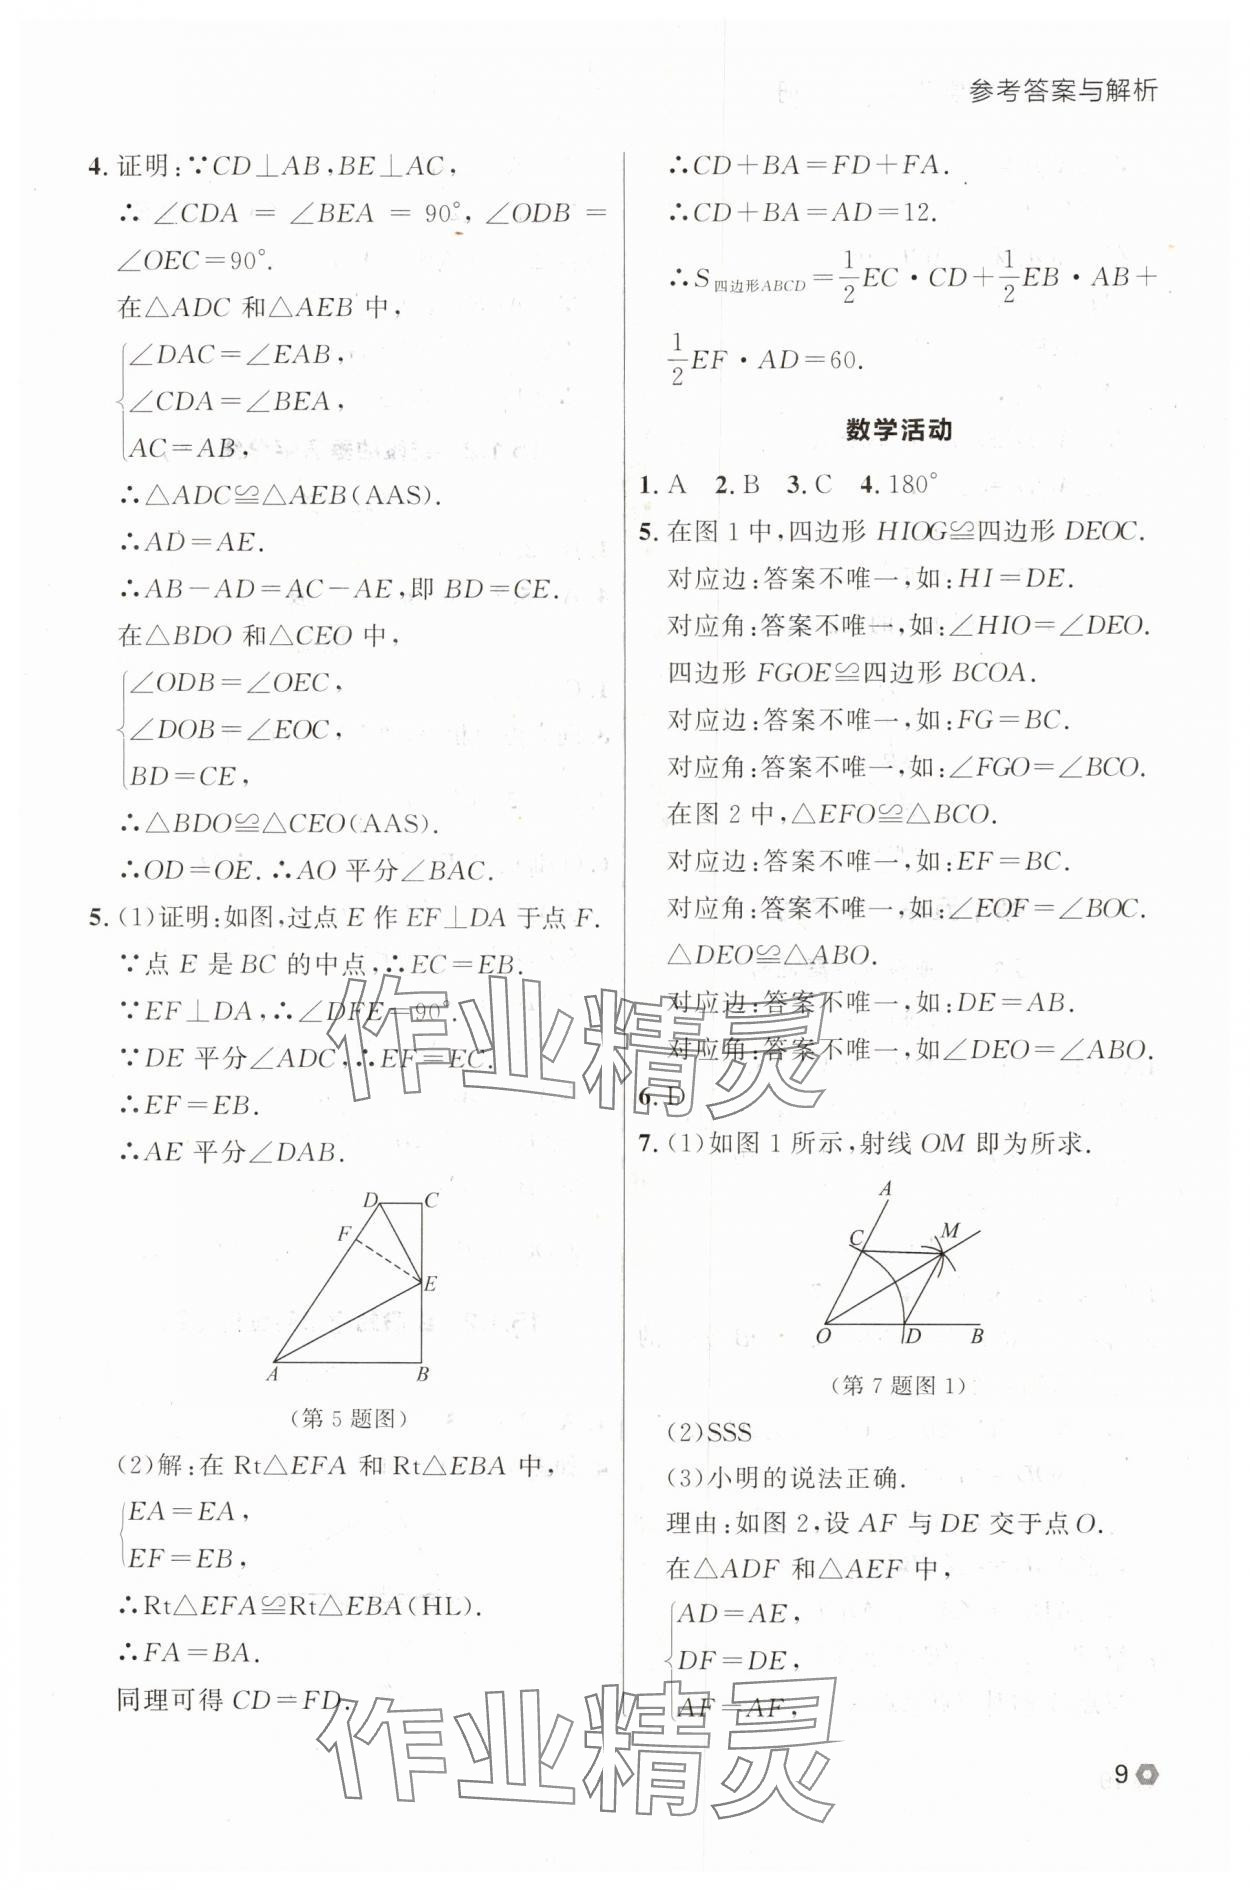 参考答案与解析
4. 证明:∵CD⊥AB,BE⊥AC,
∴ ∠CDA = ∠BEA = 90°, ∠ODB =
∠OEC=90°.
在△ADC 和△AEB 中,
∠DAC=∠EAB,
∠CDA=∠BEA,
AC=AB,
∴△ADC≌△AEB(AAS).
∴AD=AE.
∴AB-AD=AC-AE,即 BD=CE.
在△BDO 和△CEO 中,
∠ODB=∠OEC,
∠DOB=∠EOC,
BD=CE,
∴△BDO≌△CEO(AAS).
∴OD=OE. ∴AO 平分∠BAC.
5. (1)证明:如图,过点 E 作 EF⊥DA 于点 F.
∵点 E 是 BC 的中点,∴EC=EB.
∵EF⊥DA,∴∠DFE=90°.
∵DE 平分∠ADC,∴EF=EC.
∴EF=EB.
∴AE 平分∠DAB.
D C
F
E
A B
(第 5 题图)
(2)解:在 Rt△EFA 和 Rt△EBA 中,
EA=EA,
EF=EB,
∴Rt△EFA≌Rt△EBA(HL).
∴FA=BA.
同理可得 CD=FD.
∴CD+BA=FD+FA.
∴CD+BA=AD=12.
∴S四边形ABCD=1/2EC·CD+1/2EB·AB+
1/2EF·AD=60.
数学活动
1. A 2. B 3. C 4. 180°
5. 在图 1 中,四边形 HIOG≌四边形 DEOC.
对应边:答案不唯一,如:HI=DE.
对应角:答案不唯一,如:∠HIO=∠DEO.
四边形 FGOE≌四边形 BCOA.
对应边:答案不唯一,如:FG=BC.
对应角:答案不唯一,如:∠FGO=∠BCO.
在图 2 中,△EFO≌△BCO.
对应边:答案不唯一,如:EF=BC.
对应角:答案不唯一,如:∠EOF=∠BOC.
△DEO≌△ABO.
对应边:答案不唯一,如:DE=AB.
对应角:答案不唯一,如∠DEO=∠ABO.
6. D
7. (1)如图 1 所示,射线 OM 即为所求.
A
C M
O D B
(第 7 题图 1)
(2)SSS
(3)小明的说法正确.
理由:如图 2,设 AF 与 DE 交于点O.
在△ADF 和△AEF 中,
AD=AE,
DF=DE,
AF=AF,
作业精灵
作业精灵
9